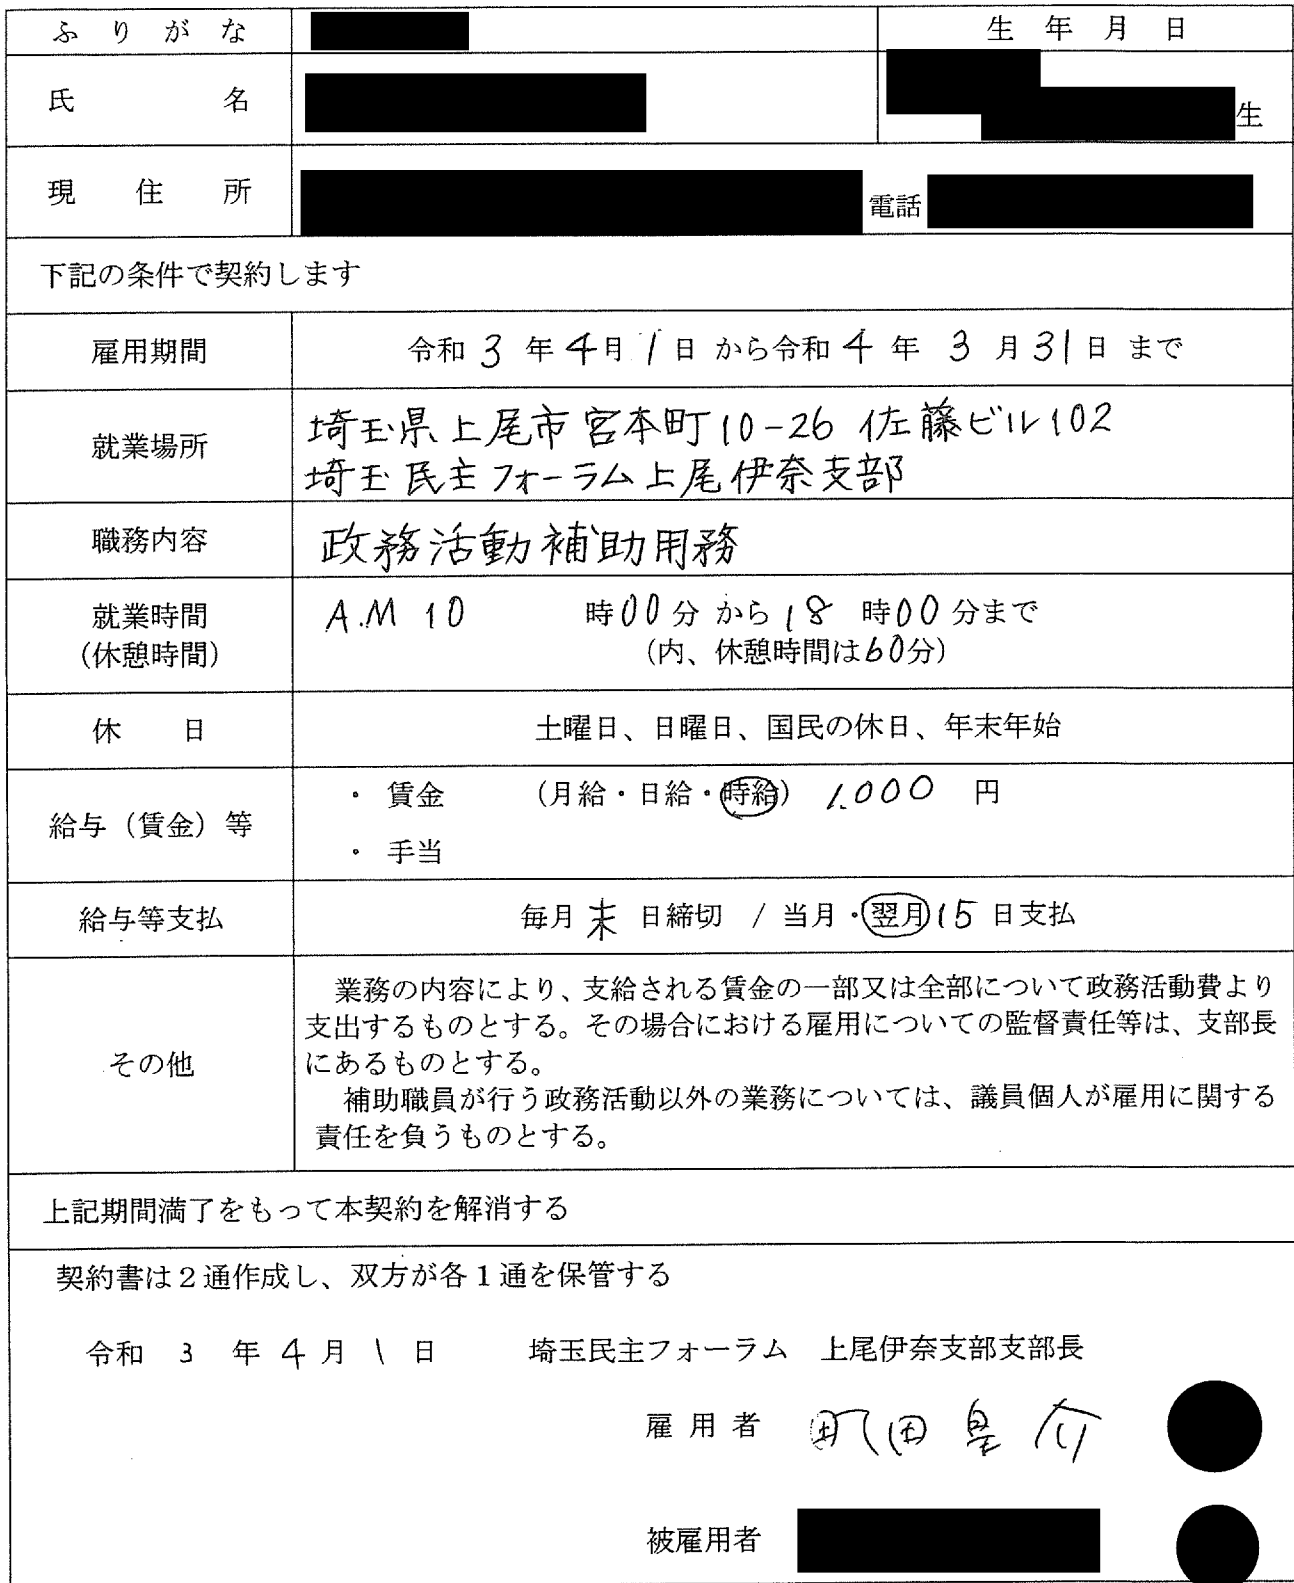 ふりがな
生年月日
氏名
生
現住所
電話
下記の条件で契約します
雇用期間
令和 3 年 4月 1日 から令和 4 年 3 月 31日 まで
就業場所
埼玉県上尾市宮本町10-26 佐藤ビル102
埼玉民主フォーラム上尾伊奈支部
職務内容
政務活動補助用務
就業時間
(休憩時間)
A.M 10 時00分 から 18 時00分まで
(内、休憩時間は60分)
休日
土曜日、日曜日、国民の休日、年末年始
給与(賃金)等
・ 賃金 (月給・日給・時給) 1,000 円
・ 手当
給与等支払
毎月 末 日締切 / 当月・翌月15日支払
その他
業務の内容により、支給される賃金の一部又は全部について政務活動費より
支出するものとする。その場合における雇用についての監督責任等は、支部長
にあるものとする。
補助職員が行う政務活動以外の業務については、議員個人が雇用に関する
責任を負うものとする。
上記期間満了をもって本契約を解消する
契約書は2通作成し、双方が各1通を保管する
令和 3 年 4 月 1 日 埼玉民主フォーラム 上尾伊奈支部支部長
雇用者 町田皇介
被雇用者